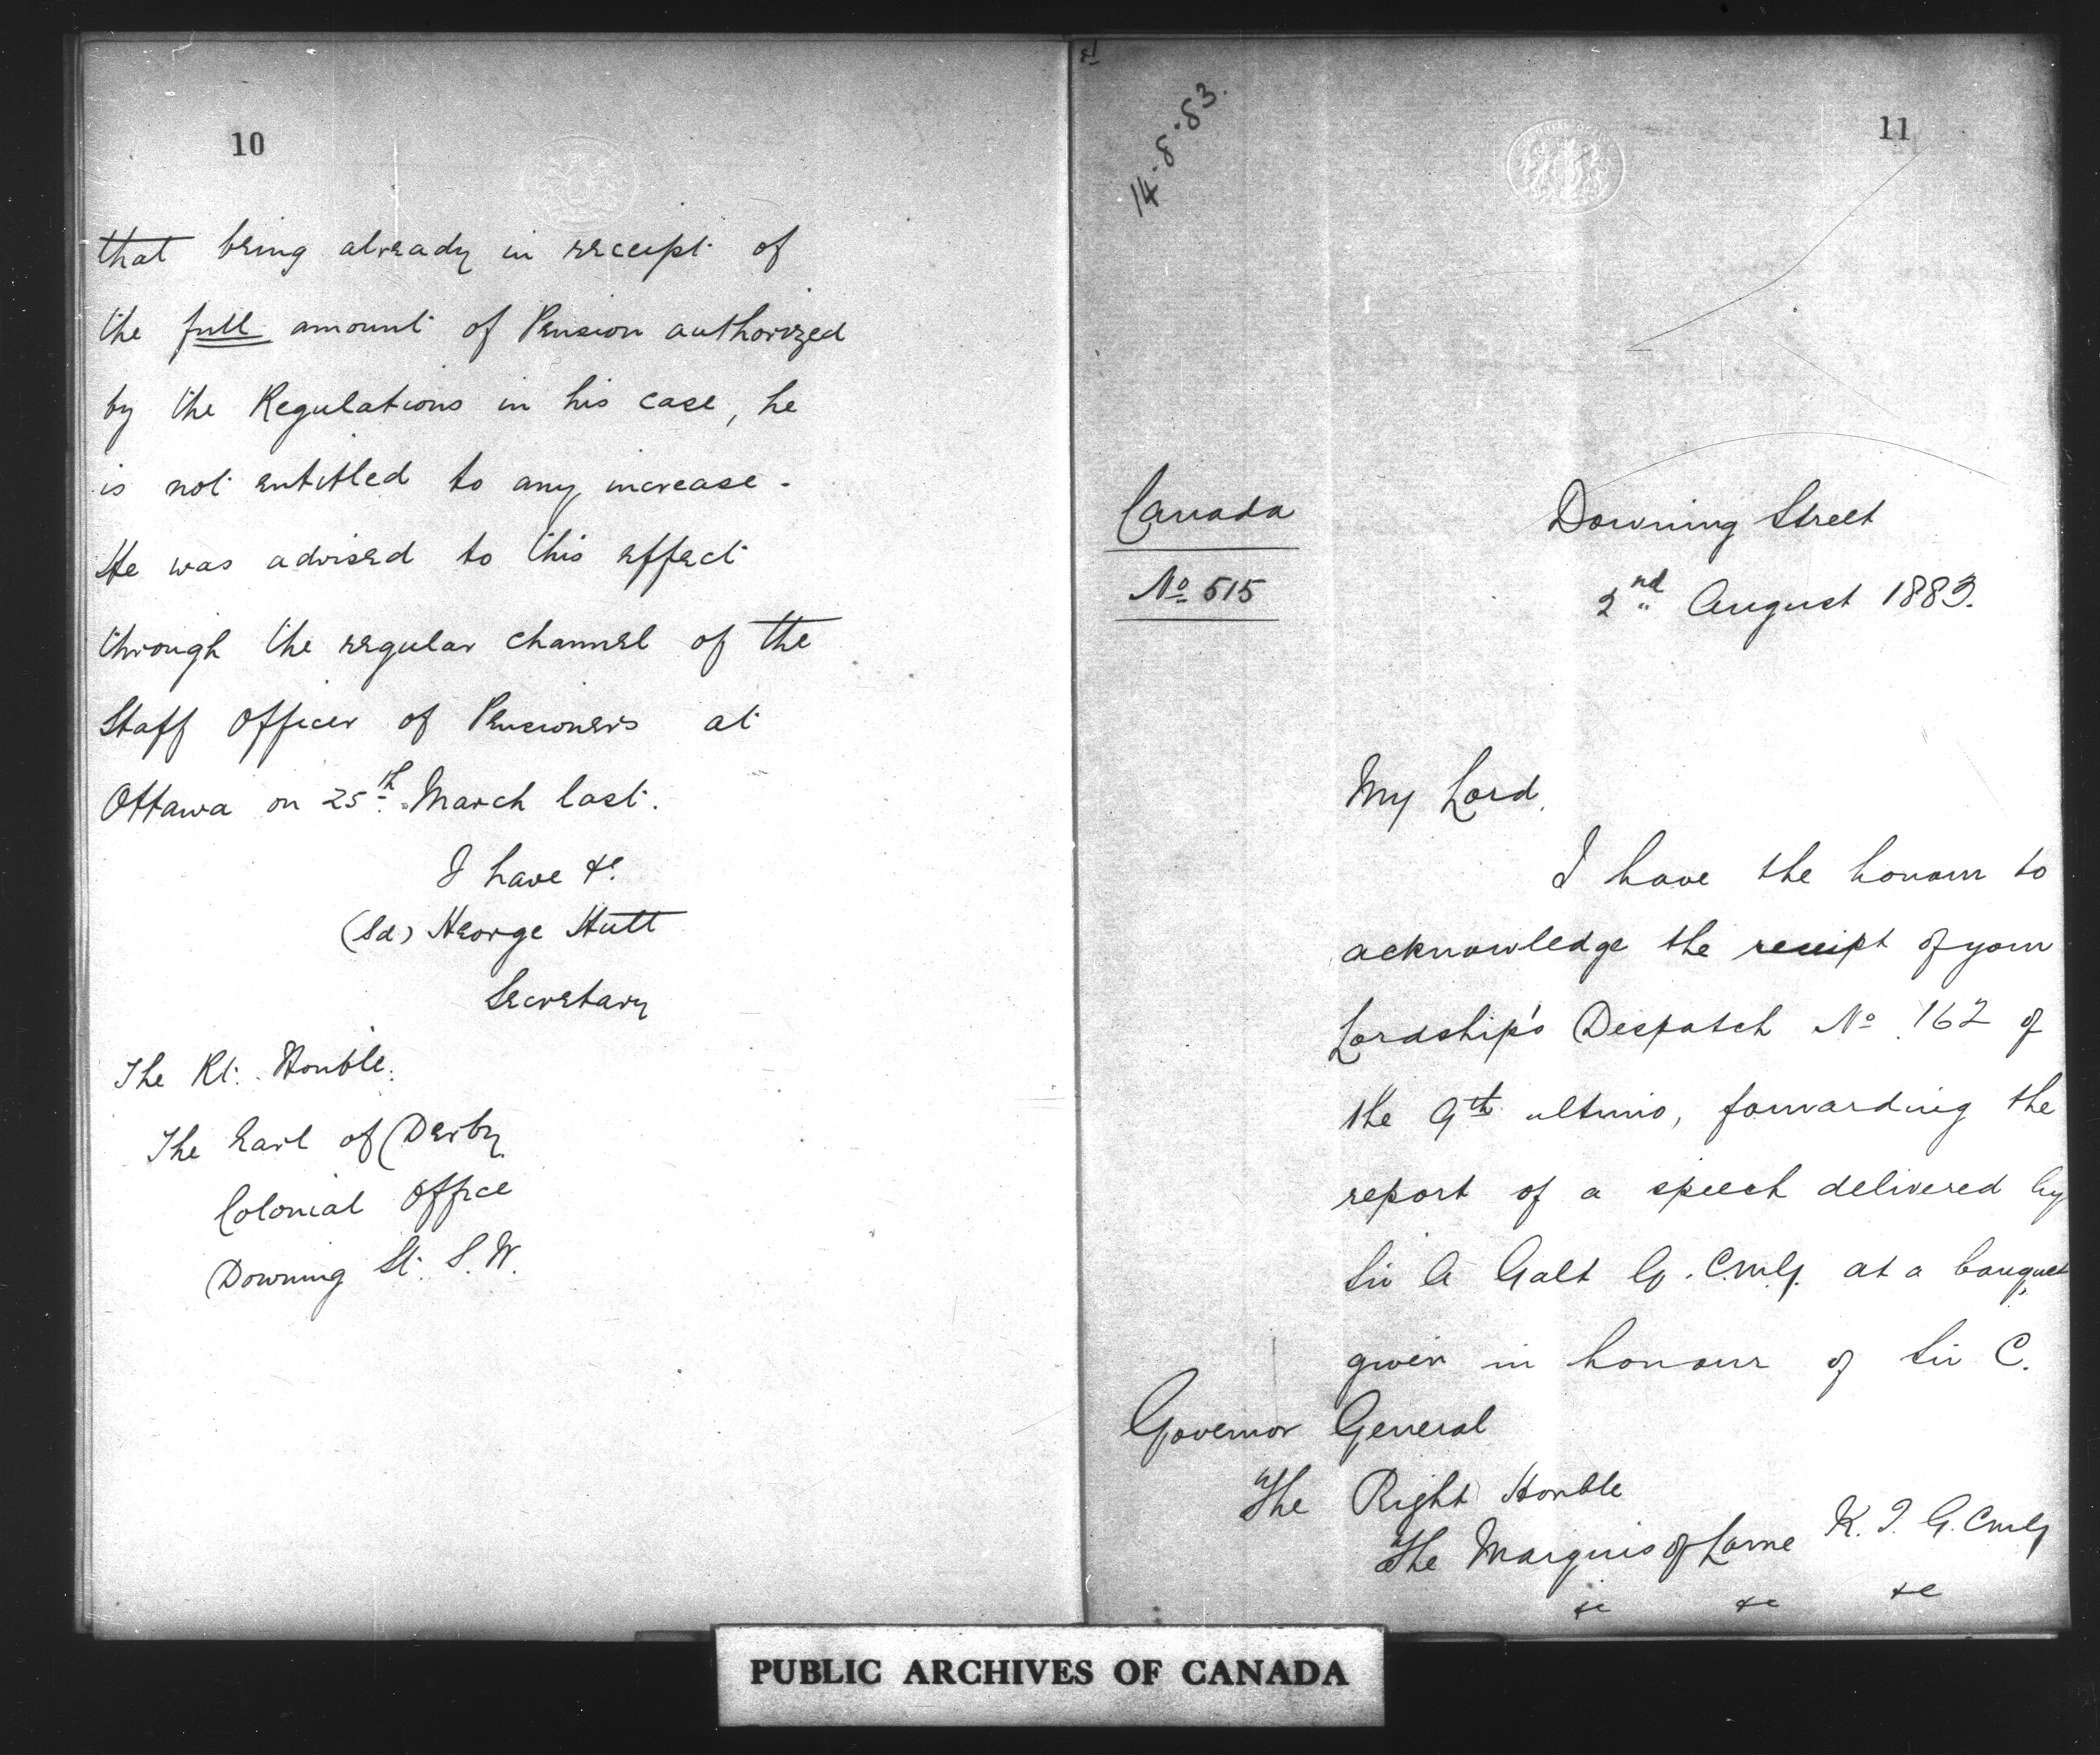 10
that being already in receipt of
the full amount of Pension authorized
by the Regulations in his case, he
is not entitled to any increase.
He was advised to this effect
through the regular channel of the
Staff Officer of Pensioners at
Ottawa on 25th March last.
I have &c.
(Sd) George Hutt
Secretary
The Rt. Honble.
The Earl of Derby
Colonial Office
Downing St. S.W.
11
14.8.83.
Canada
No 515
Downing Street
2nd August 1883.
My Lord,
I have the honour to
acknowledge the receipt of your
Lordship's Despatch No. 162 of
the 9th ultimo, forwarding the
report of a speech delivered by
Sir A Galt G.C.M.G. at a banquet
given in honour of Sir C.
Governor General
The Right Honble
The Marquis of Lorne K.T. G.C.M.G
&c &c &c
PUBLIC ARCHIVES OF CANADA